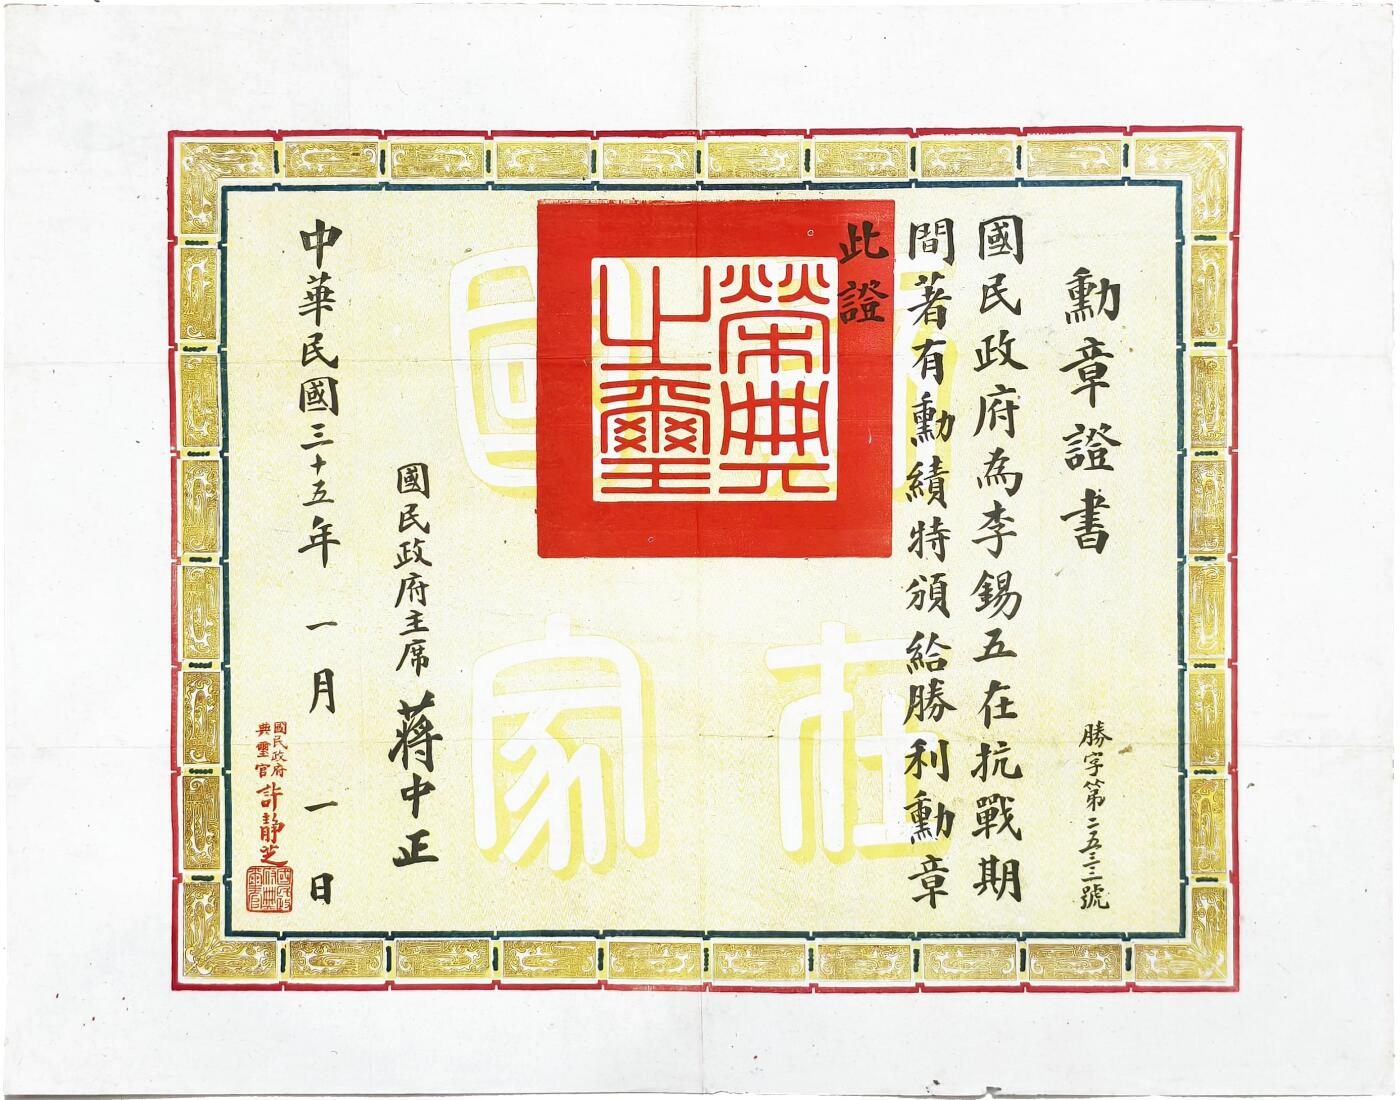 勳章證書
勝字第二五三三號
國民政府為李錫五在抗戰期
間著有勳績特頒給勝利勳章
此證
榮典
之璽
功在
國家
國民政府主席蔣中正
中華民國三十五年一月一日
國民政府
典璽官許靜芝
國民政
府典
璽官